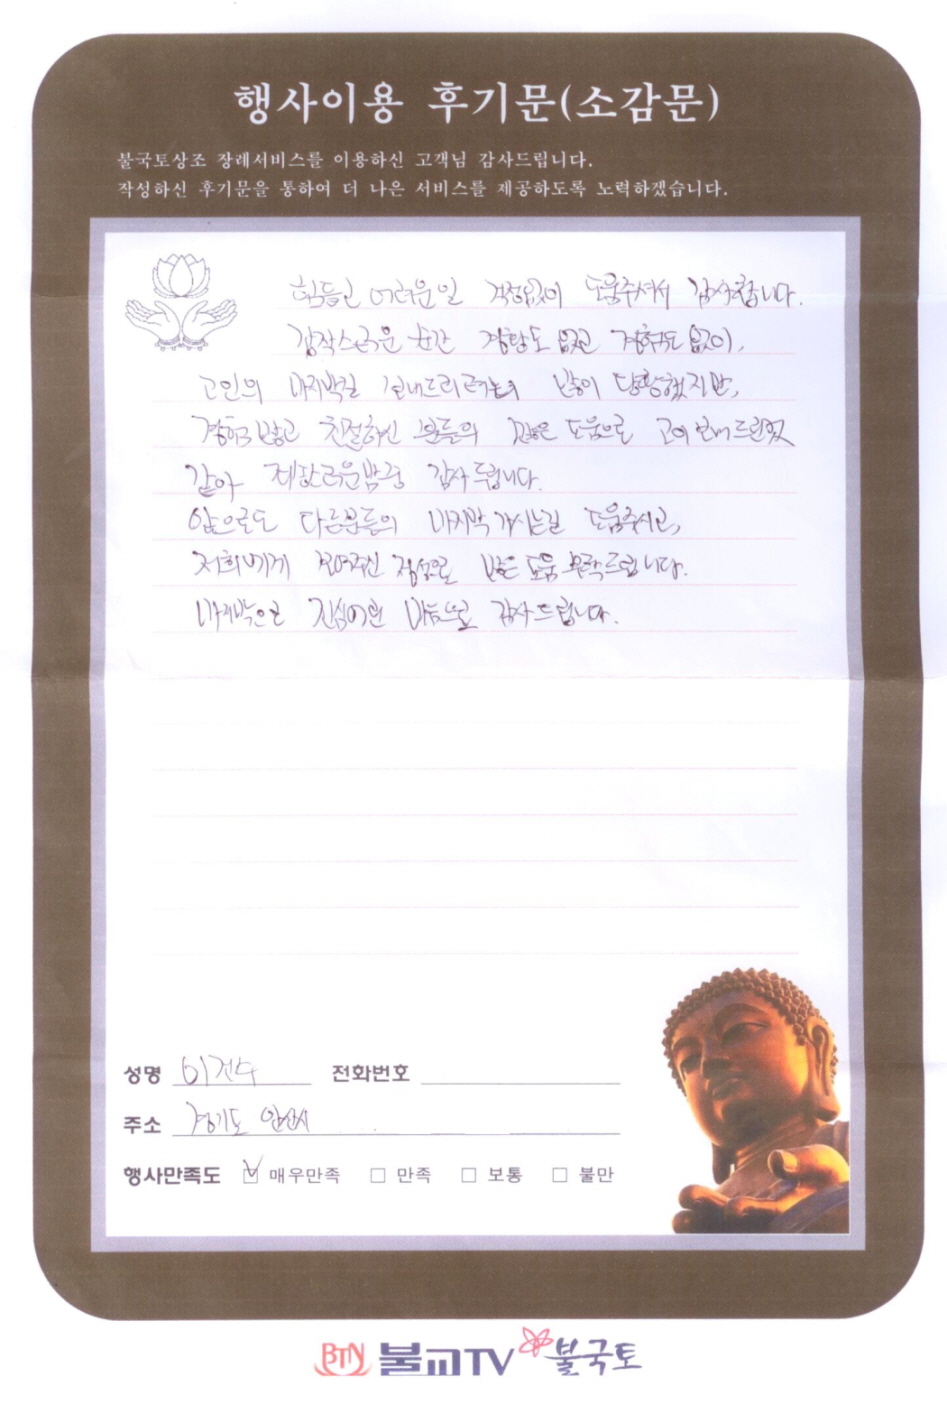 행사이용 후기문(소감문)
불국토상조 장례서비스를 이용하신 고객님 감사드립니다.
작성하신 후기문을 통하여 더 나은 서비스를 제공하도록 노력하겠습니다.
힘들고 어려운일 걱정없이 도움주셔서 감사합니다.
갑작스러운 순간 경황도 없고 경험도 없이,
고인의 마지막길 보내드리려니 많이 당황했지만,
경험많고 친절하신 분들의 도움으로 고이 보내드린것
같아 감사드립니다.
앞으로도 다른분들의 마지막 가시는길 도움주시고,
저희에게 보여주신 정성으로 많은 도움 부탁드립니다.
마지막으로 진심어린 마음으로 감사드립니다.
성명 이건수 전화번호
주소 경기도 안산시
행사만족도 매우만족 만족 보통 불만
BTN 불교TV 불국토